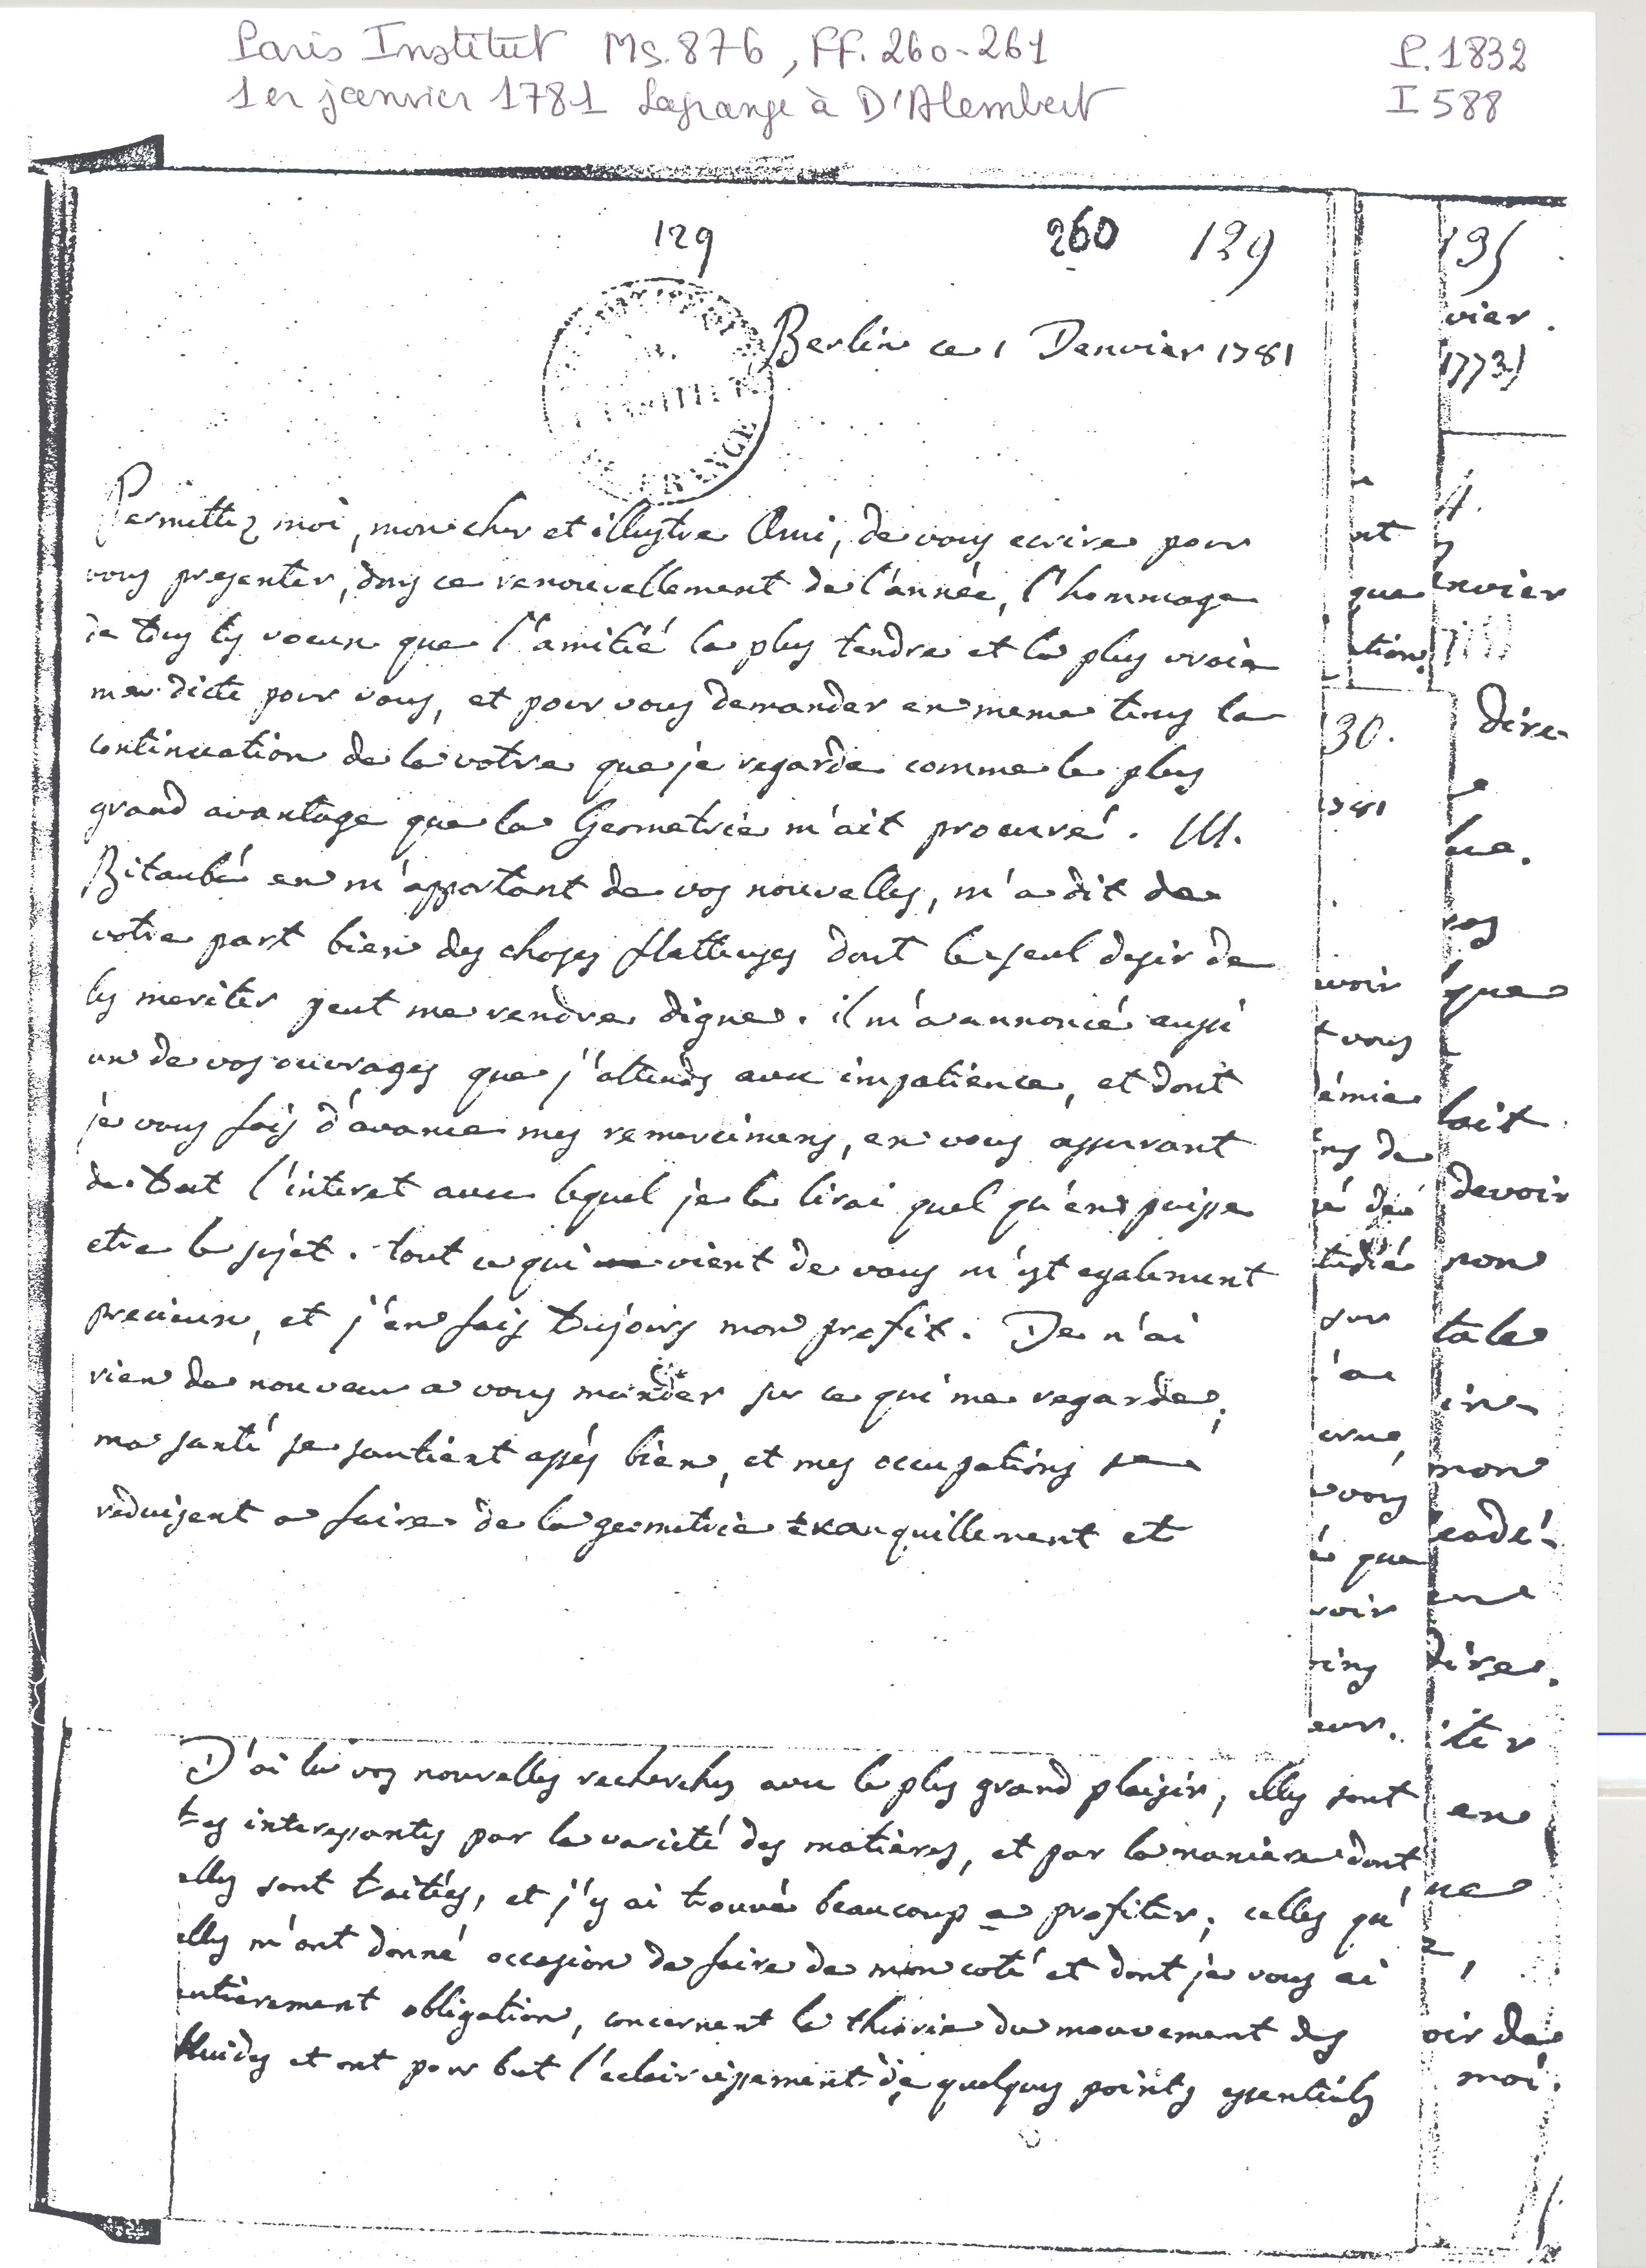 Paris Institut Ms. 876, FF. 260-261
P. 1832
1er janvier 1781 Lagrange à D'Alembert
I 588
129
260
129
Berlin ce 1 Janvier 1781
Permettez moi, mon cher et illustre Ami, de vous ecrire pour
vous presenter, dans ce renouvellement de l'année, l'hommage
de tous les voeux que l'amitié la plus tendre et la plus vraie
me dicte pour vous, et pour vous demander en meme tems la
continuation de la votre que je regarde comme le plus
grand avantage que la Geometrie m'ait procuré. M.
Bitaubé en m'apportant de vos nouvelles, m'a dit de
votre part bien des choses flatteuses dont le seul desir de
les meriter peut me rendre digne. il m'a annoncé aussi
un de vos ouvrages que j'attends avec impatience, et dont
je vous fais d'avance mes remercimens, en vous assurant
de tout l'interet avec lequel je le lirai quel qu'en puisse
etre le sujet. tout ce qui vient de vous m'est egalement
precieux, et j'en fais toujours mon profit. Je n'ai
rien de nouveau a vous mander sur ce qui me regarde;
ma santé se soutient assés bien, et mes occupations se
reduisent a faire de la geometrie tranquillement et
J'ai lu vos nouvelles recherches avec le plus grand plaisir; elles sont
tres interessantes par la varieté des matières, et par la manière dont
elles sont traitées, et j'y ai trouvé beaucoup a profiter; celles qu'
elles m'ont donné occasion de faire de mon coté et dont je vous ai
entierement obligation, concernent la théorie du mouvement des
fluides et ont pour but l'eclaircissement de quelques points essentiels
nt
que
30.
1781
voir
t vous
démie
sur
vous
que
voir
195
vier
1773)
nvier
dire
que
devoir
non
mon
cadé-
dire.
en
oir de
moi.